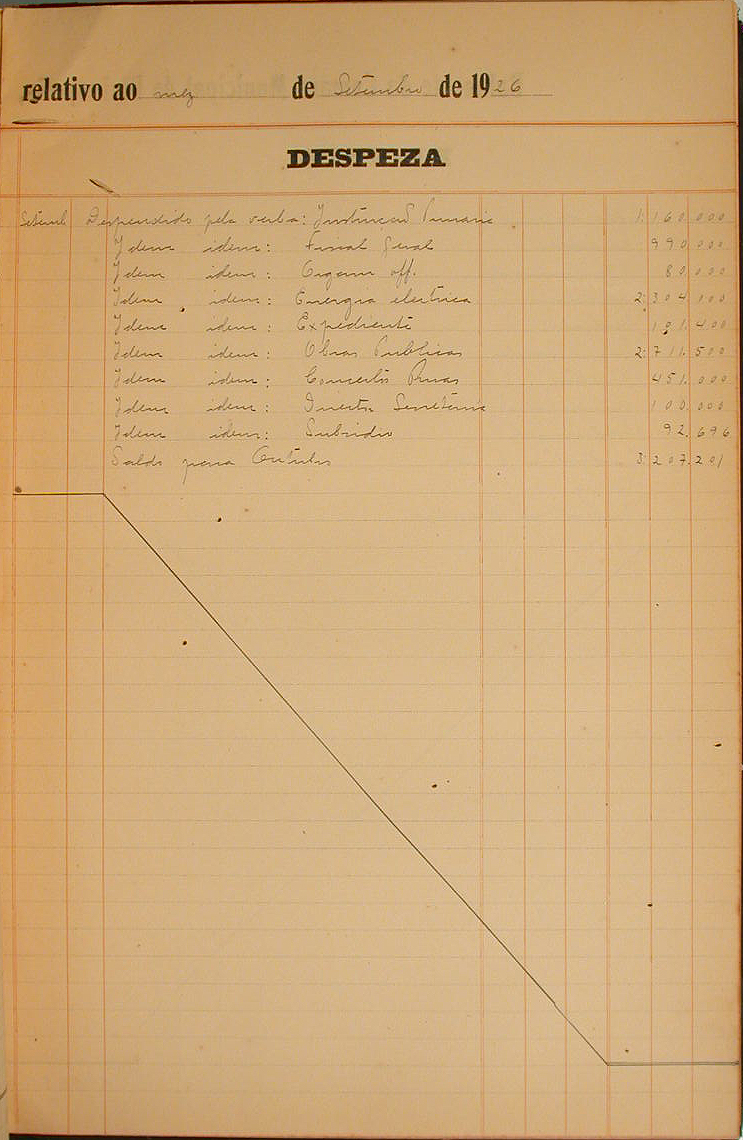 relativo ao mez de Setembro de 1926
DESPEZA
Setemb Despendido pela verba: Instrucção Primaria 1:160.000
Idem idem: Fiscal Geral 990.000
Idem idem: Orgam off. 80.000
Idem idem: Energia electrica 2:304.000
Idem idem: Expediente 101.400
Idem idem: Obras Publicas 2:711.500
Idem idem: Concertos Ruas 451.000
Idem idem: Secretaria 100.000
Idem idem: Subsidio 92.696
Saldo para Outubro 3:207.201